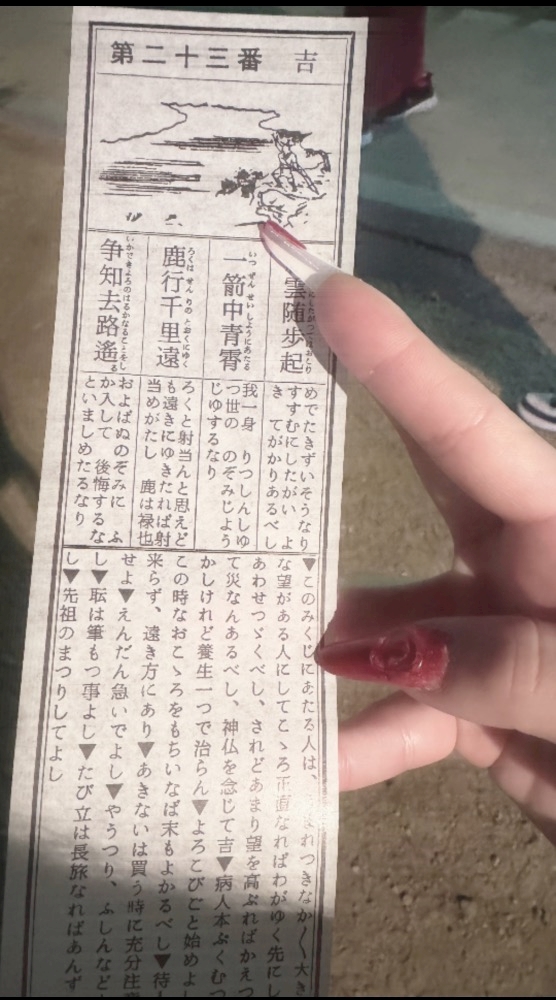 第二十三番 吉
雲随歩起
一箭中青霄
いつせんせいしようにあたる
鹿行千里遠
ろくは せんりの とおくにゆく
争知去路遙
いかできよろのはるかなることをしる
めでたきずいそうなり
すすむにしたがい よ
き てがかりあるべし
我一身 りつしんしゆ
つ世の のぞみじよう
じゆするなり
ろくと射当んと思えど
も遠きにゆきたれば射
当めがたし 鹿は禄也
およばぬのぞみに ふ
か入して 後悔するな
といましめたるなり
▼このみくじにあたる人は、まれつきなか〳〵大き
な望がある人にしてこゝろ正直なればわがゆく先にし
あわせつゞくべし、されどあまり望を高ぶればかえつ
て災なんあるべし、神仏を念じて吉▼病人本ぷくむつ
かしけれど養生一つで治らん▼よろこびごと始めよし
この時なおこゝろをもちいなば末もよかるべし▼待人
来らず、遠き方にあり▼あきないは買う時に充分注
せよ▼えんだん急いでよし▼やうつり、ふしんなど
し▼耘は筆もつ事よし▼たび立は長旅なればあんず
し▼先祖のまつりしてよし